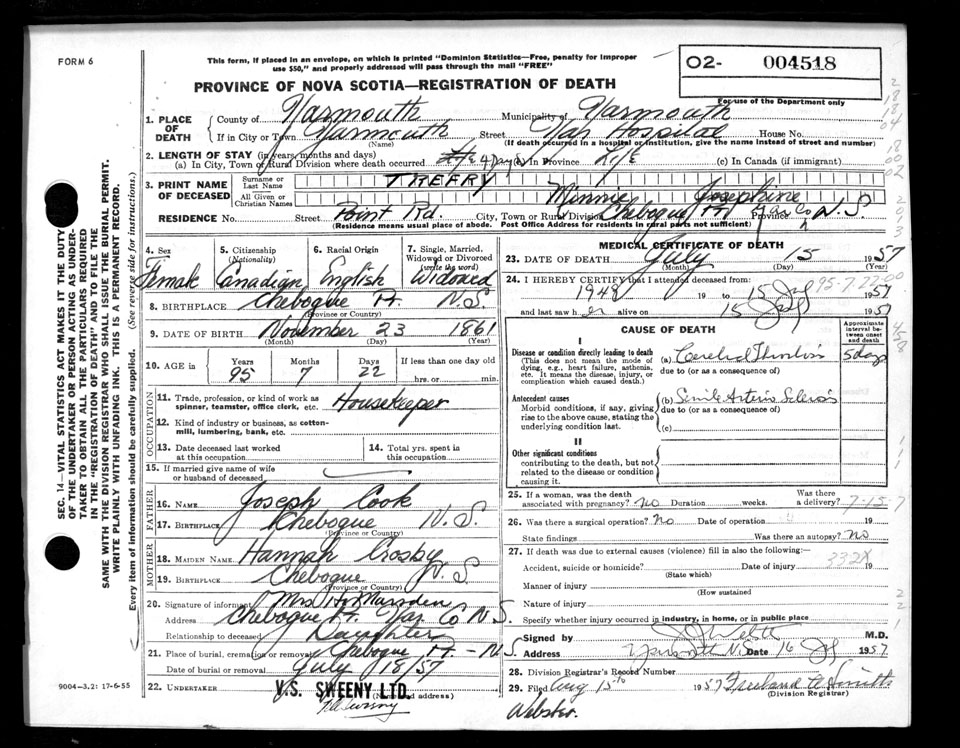 FORM 6
This form, if placed in an envelope, on which is printed "Dominion Statistics—Free, penalty for improper
use $50," and properly addressed will pass through the mail "FREE"
O2- 004518
For use of the Department only
PROVINCE OF NOVA SCOTIA—REGISTRATION OF DEATH
1. PLACE OF DEATH
County of Yarmouth Municipality of Yarmouth
If in City or Town Yarmouth Street Yar Hospital House No.
(Name) (If death occurred in a hospital or institution, give the name instead of street and number)
2. LENGTH OF STAY (in years, months and days)
(a) In City, Town or Rural Division where death occurred 4 Days (b) In Province Life (c) In Canada (if immigrant)
3. PRINT NAME OF DECEASED
Surname or Last Name TREFRY
All Given or Christian Names Minnie Josephine
RESIDENCE No. Street Point Rd. City, Town or Rural Division Chebogue Pt. Yar Co Province N.S.
(Residence means usual place of abode. Post Office Address for residents in rural parts not sufficient)
4. Sex Female
5. Citizenship (Nationality) Canadian
6. Racial Origin English
7. Single, Married, Widowed or Divorced (write the word) Widowed
8. BIRTHPLACE Chebogue Pt. N.S
(Province or Country)
9. DATE OF BIRTH November 23 1861
(Month) (Day) (Year)
10. AGE in Years 95 Months 7 Days 22 If less than one day old hrs. or min.
OCCUPATION
11. Trade, profession, or kind of work as spinner, teamster, office clerk, etc. Housekeeper
12. Kind of industry or business, as cotton-mill, lumbering, bank, etc.
13. Date deceased last worked at this occupation
14. Total yrs. spent in this occupation
15. If married give name of wife or husband of deceased
FATHER
16. NAME Joseph Cook
17. BIRTHPLACE Chebogue N.S.
(Province or Country)
MOTHER
18. MAIDEN NAME Hannah Crosby
19. BIRTHPLACE Chebogue N.S
(Province or Country)
20. Signature of informant Mrs
Address Chebogue Pt. Yar Co N.S.
Relationship to deceased Daughter
21. Place of burial, cremation or removal Chebogue Pt. - N.S.
Date of burial or removal July 18/57
22. UNDERTAKER V.S. SWEENY LTD.
(Name and address)
MEDICAL CERTIFICATE OF DEATH
23. DATE OF DEATH July 15 1957
(Month) (Day) (Year)
24. I HEREBY CERTIFY that I attended deceased from:
1948 19 to 15 July 1957
and last saw her alive on 15 July 1957
95-7-22-00
CAUSE OF DEATH
Approximate interval between onset and death
I
Disease or condition directly leading to death (a) Cerebral Thrombosis 5 days
(This does not mean the mode of dying, e.g., heart failure, asthenia, etc. It means the disease, injury, or complication which caused death.)
due to (or as a consequence of)
Antecedent causes (b) Senile Arterio Sclerosis
Morbid conditions, if any, giving rise to the above cause, stating the underlying condition last.
due to (or as a consequence of)
(c)
II
Other significant conditions
contributing to the death, but not related to the disease or condition causing it.
25. If a woman, was the death associated with pregnancy? No Duration weeks. Was there a delivery? 7-15-7
26. Was there a surgical operation? No Date of operation 19
State findings Was there an autopsy? No
27. If death was due to external causes (violence) fill in also the following:—
Accident, suicide or homicide? Date of injury 19
(State which)
332X
Manner of injury
(How sustained)
Nature of injury
Specify whether injury occurred in industry, in home, or in public place
Signed by Webster M.D.
Address Yarmouth N.S. Date 16 July 1957
28. Division Registrar's Record Number
29. Filed Aug 15th 1957
(Division Registrar)
Webster.
SEC. 14—VITAL STATISTICS ACT MAKES IT THE DUTY
OF THE UNDERTAKER OR PERSON ACTING AS UNDER-
TAKER TO OBTAIN ALL THE PARTICULARS REQUIRED
IN THE "REGISTRATION OF DEATH" AND TO FILE THE
SAME WITH THE DIVISION REGISTRAR WHO SHALL ISSUE THE BURIAL PERMIT.
WRITE PLAINLY WITH UNFADING INK. THIS IS A PERMANENT RECORD.
Every item of information should be carefully supplied. (See reverse side for instructions.)
9004-3.2: 17-6-55